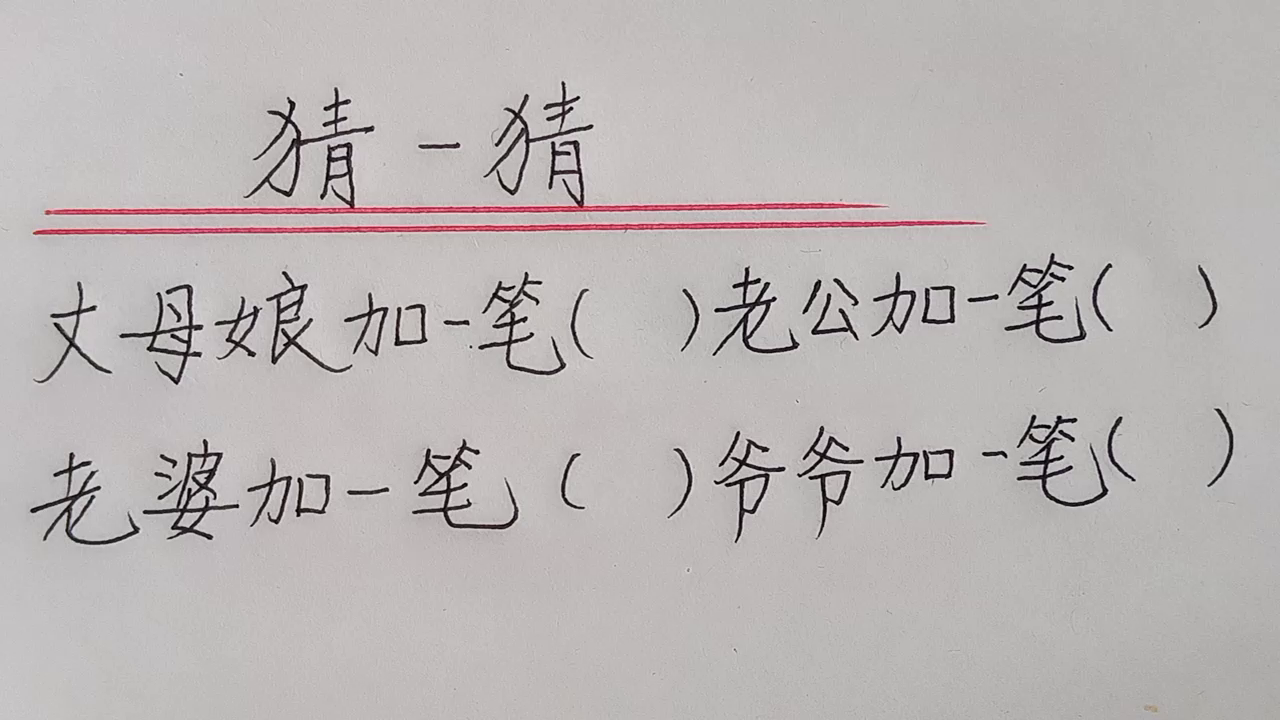 猜一猜
丈母娘加一笔( )老公加一笔( )
老婆加一笔( )爷爷加一笔( )